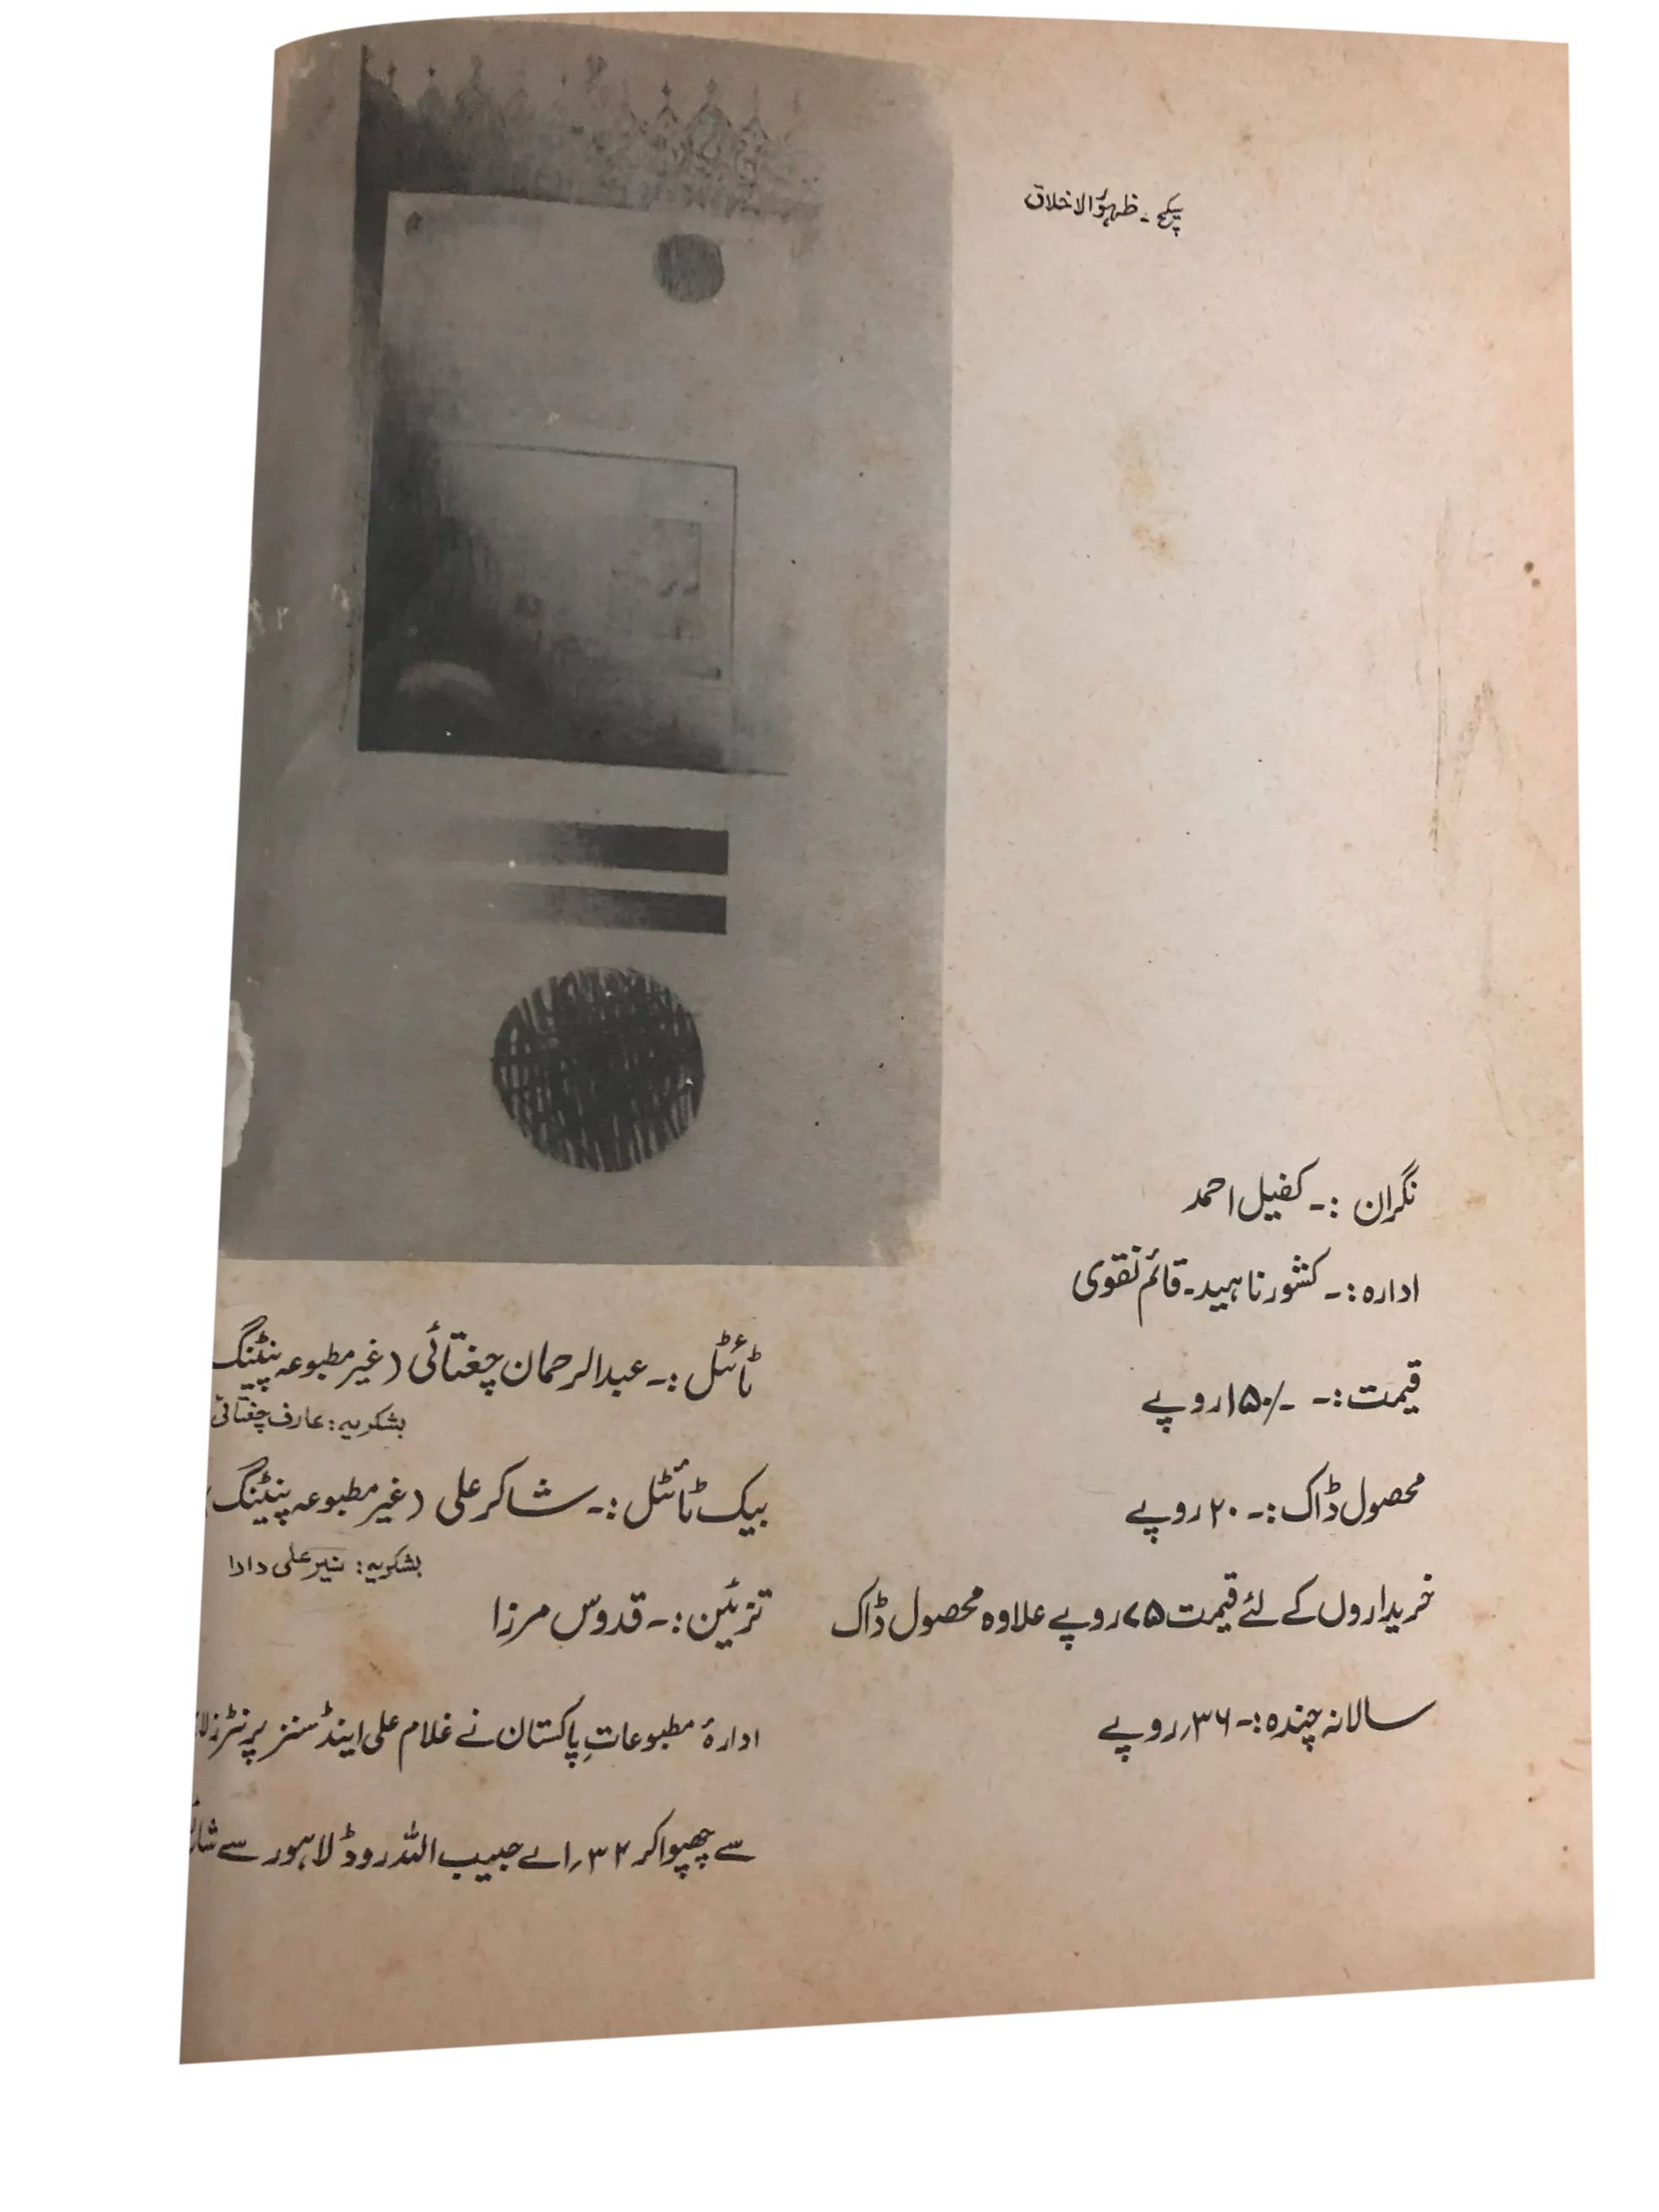 سکیچ ۔ ظہورُ الاخلاق
نگران :۔ کفیل احمد
ادارہ :۔ کشور ناہید ۔ قائم نقوی
قیمت :۔ ۔/۱۵۰ روپے
محصول ڈاک :۔ ۲۰ روپے
خریداروں کے لئے قیمت ۷۵ روپے علاوہ محصول ڈاک
سالانہ چندہ :۔ ۳۶ روپے
ٹائٹل :۔ عبدالرحمان چغتائی (غیر مطبوعہ پینٹنگ
بشکریہ : عارف چغتائی
بیک ٹائٹل :۔ شاکر علی (غیر مطبوعہ پینٹنگ)
بشکریہ : نیر علی دادا
تزئین :۔ قدوس مرزا
ادارۂ مطبوعاتِ پاکستان نے غلام علی اینڈ سنز پرنٹرز
سے چھپوا کر ۳۲؍اے حبیب اللہ روڈ لاہور سے